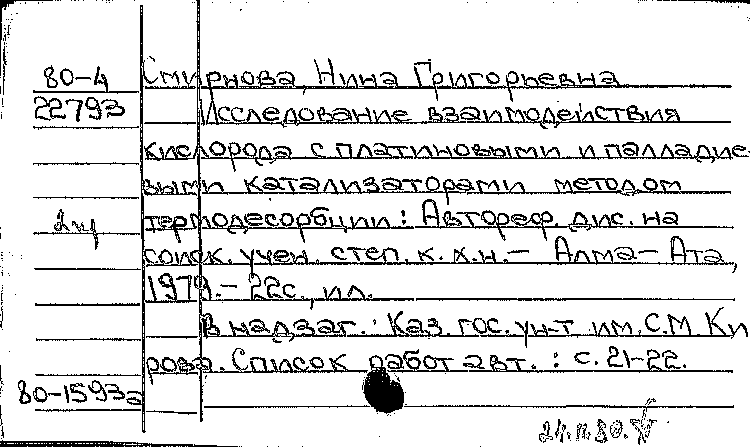 80-4 Смирнова, Нина Григорьевна
22793 Исследование взаимодействия
кислорода с платиновыми и палладие-
выми катализаторами методом
2щ термодесорбции: Автореф. дис. на
соиск. учен. степ. к. х.н. — Алма-Ата,
1979. — 22с., ил.
В надзаг.: Каз. гос. ун-т им. С.М. Ки
рова. Список работ авт.: с. 21-22.
80-1593а